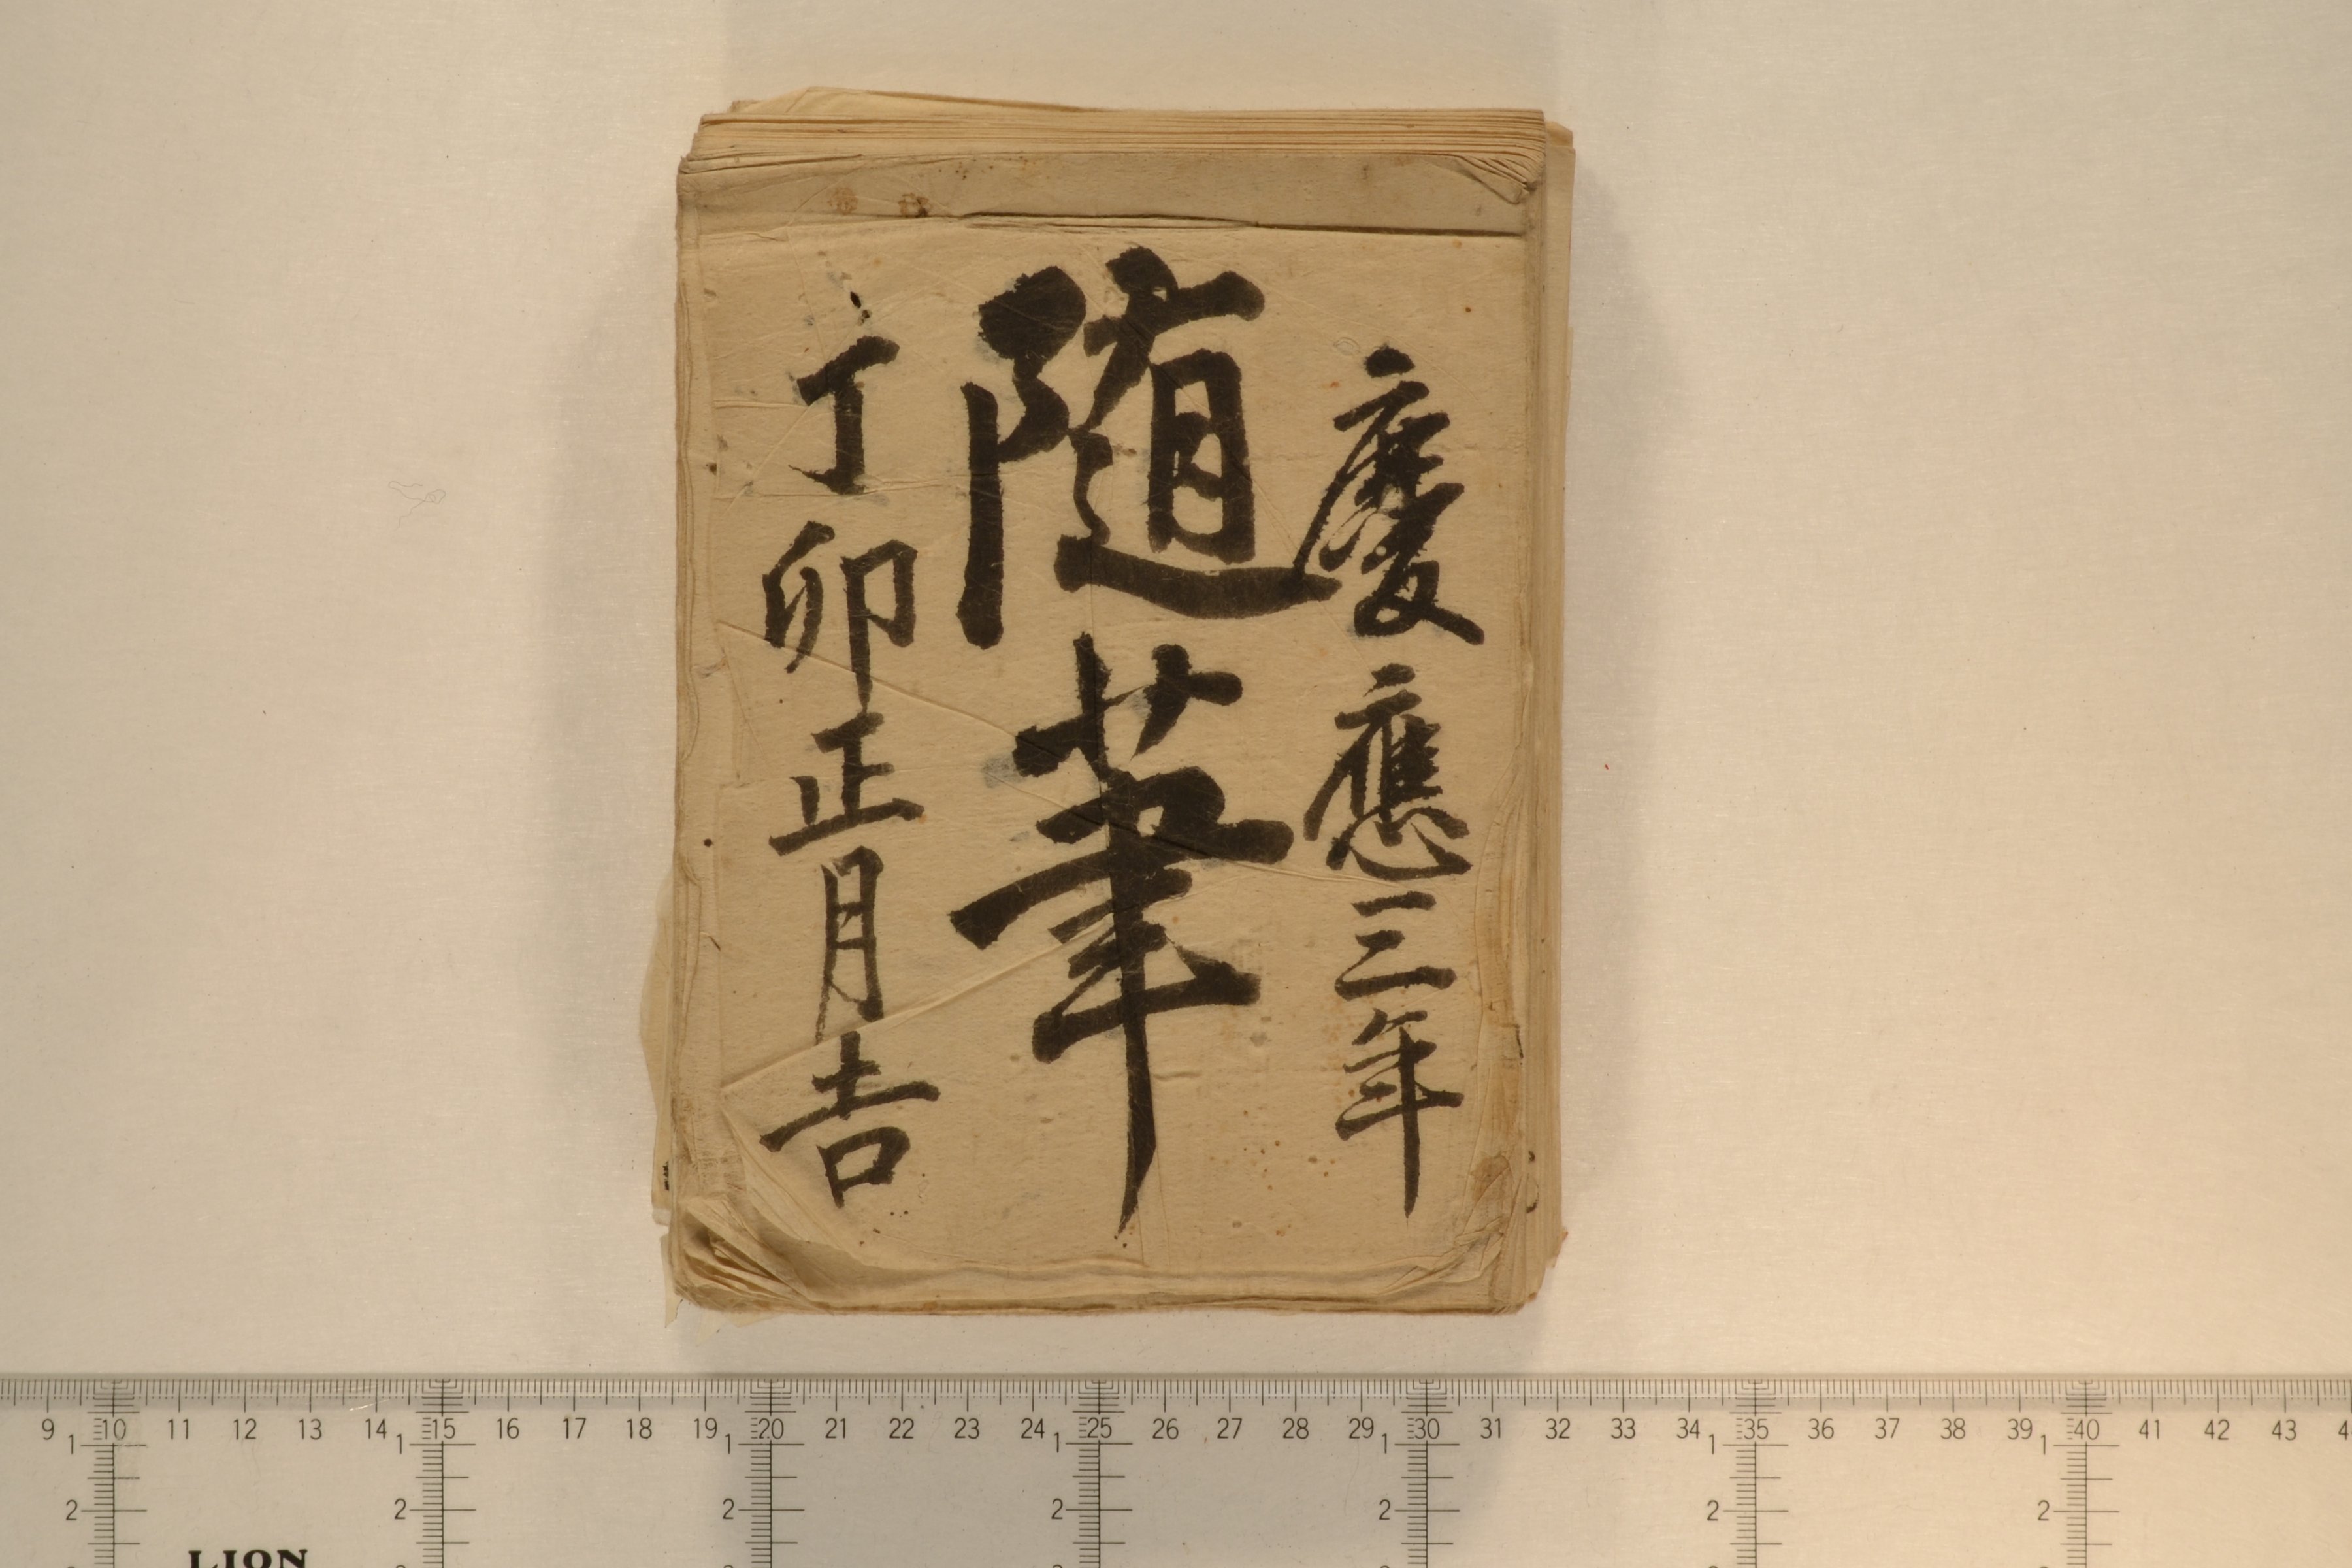 慶應三年
随筆
丁卯正月吉
9 10 11 12 13 14 15 16 17 18 19 20 21 22 23 24 25 26 27 28 29 30 31 32 33 34 35 36 37 38 39 40 41 42 43
1 1 1 1 1 1 1
2 2 2 2 2 2 2
LION